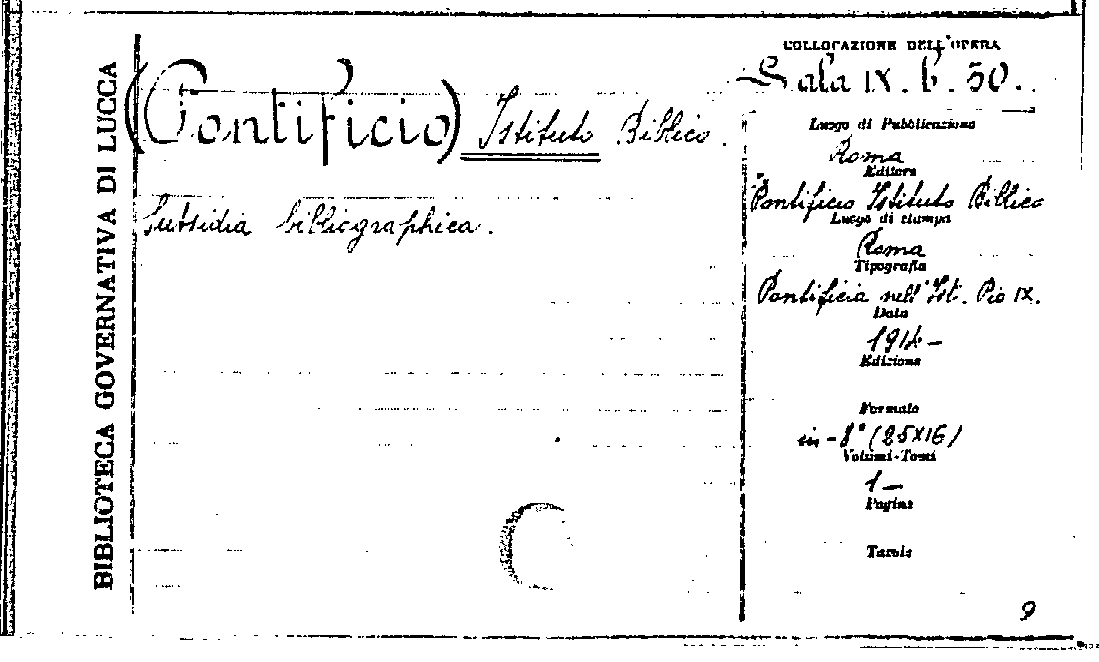 BIBLIOTECA GOVERNATIVA DI LUCCA
(Pontificio) Istituto Biblico.
Subsidia bibliographica.
COLLOCAZIONE DELL'OPERA
Sala IX. b. 50.
Luogo di Pubblicazione
Roma
Editore
Pontificio Istituto Biblico
Luogo di stampa
Roma
Tipografia
Pontificia nell'Ist. Pio IX.
Data
1914-
Edizione
Formato
in-8° (25x16)
Volumi-Tomi
1-
Pagine
Tavole
9